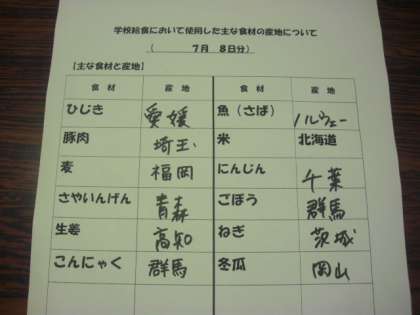 学校給食において使用した主な食材の産地について
( 7月 8日分)
【主な食材と産地】
食材 産地 食材 産地
ひじき 愛媛 魚(さば) ノルウェー
豚肉 埼玉 米 北海道
麦 福岡 にんじん 千葉
さやいんげん 青森 ごぼう 群馬
生姜 高知 ねぎ 茨城
こんにゃく 群馬 冬瓜 岡山